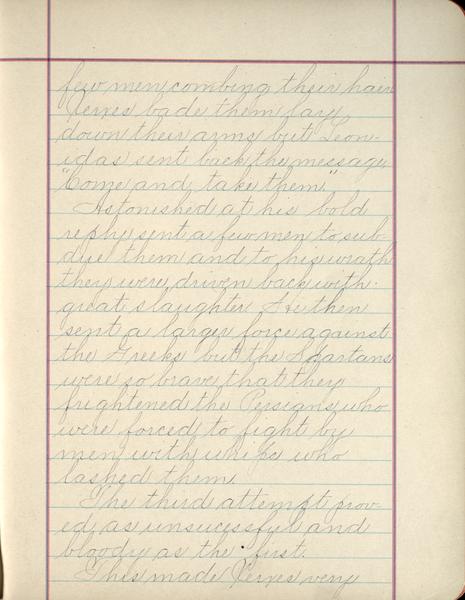 few men combing their hair
Xerxes bade them lay
down their arms but Leon-
idas sent back the message
"Come and take them."
Astonished at his bold
reply sent a few men to sub-
due them and to his wrath
they were driven back with
great slaughter. He then
sent a larger force against
the Greeks but the Spartans
were so brave that they
frightened the Persians who
were forced to fight by
men with whips who
lashed them.
The third attempt prov-
ed as unsucessful and
bloody as the first.
This made Xerxes very